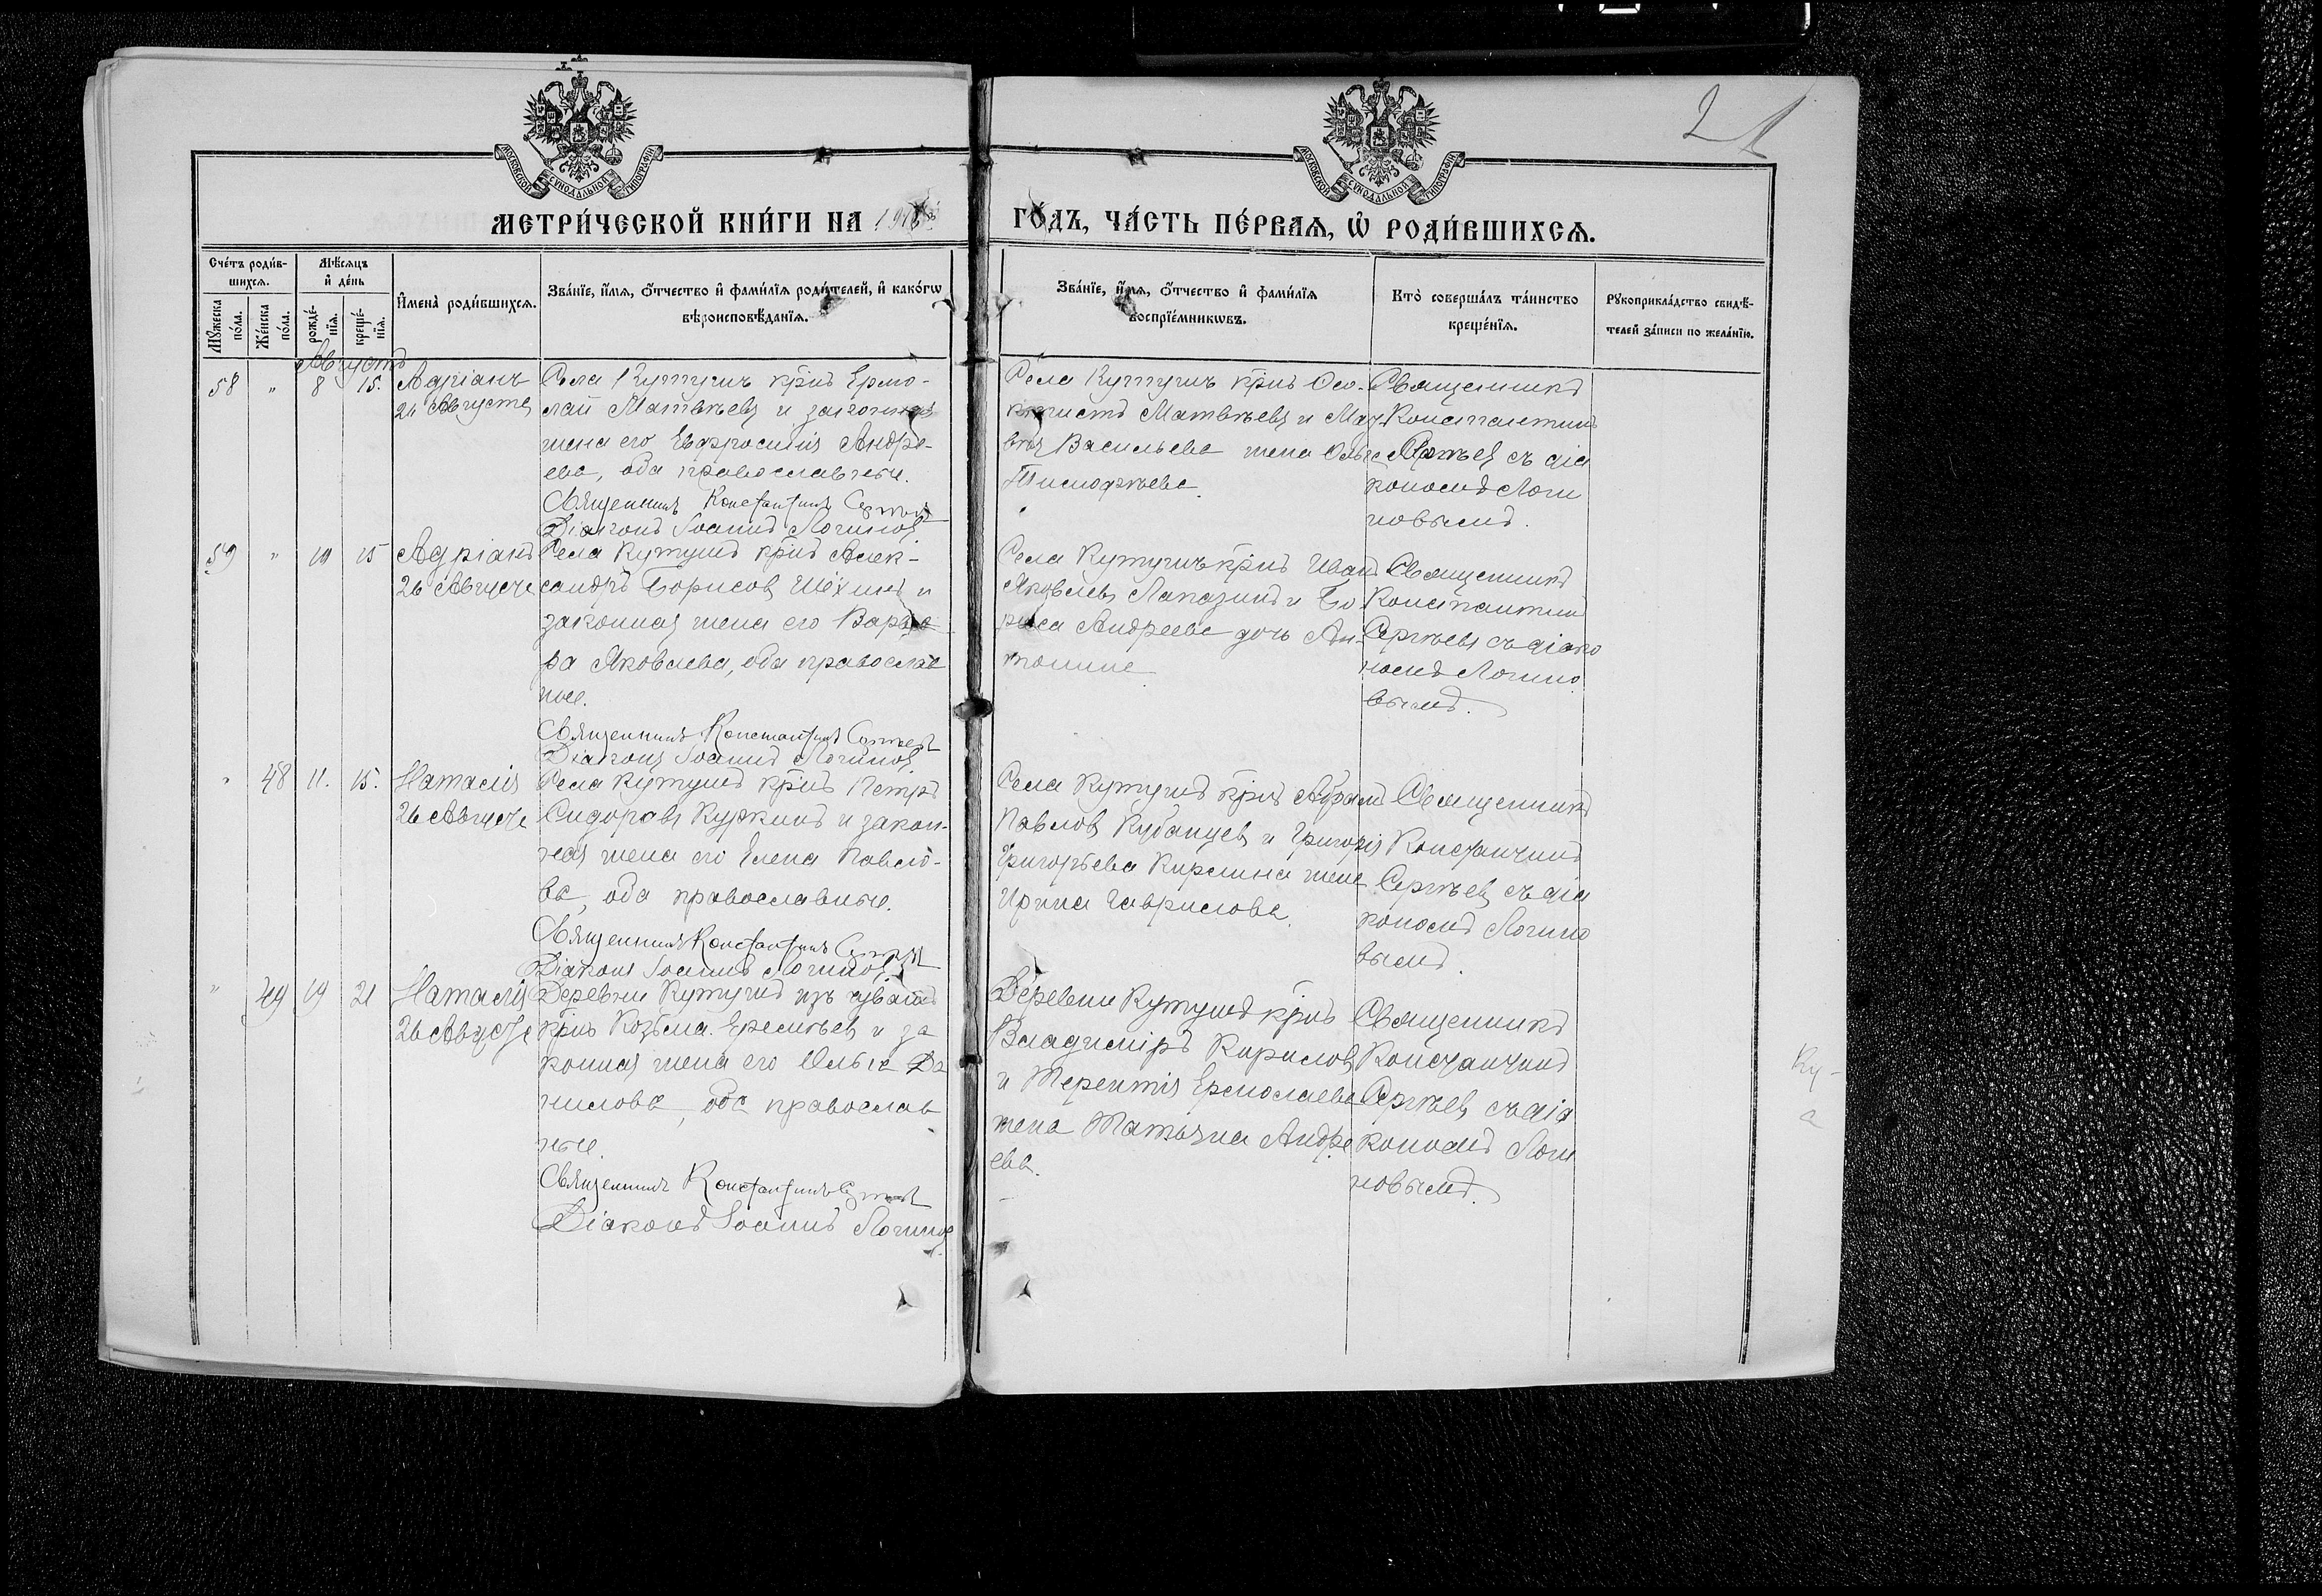 МОСКОВСКОЙ СѴНОДАЛЬНОЙ ТИПОГРАФІИ
МОСКОВСКОЙ СѴНОДАЛЬНОЙ ТИПОГРАФІИ
2
МЕТРИ́ЧЕСКОЙ КНИ́ГИ НА
ГО́ДЪ, ЧА́СТЬ ПЕ́РВАѦ, Ѡ҆ РОДИ́ВШИХСѦ.
Сче́тъ роди́в-
шихсѧ.
Мꙋ́жеска
по́ла.
Же́нска
по́ла.
Мѣ́сѧцъ
и҆ де́нь
рожде́-
нїѧ.
креще́-
нїѧ.
И҆мена̀ роди́вшихсѧ.
Зва́нїе, и҆́мѧ, ѻ҆́тчество и҆ фами́лїѧ роди́телей, и҆ како́гѡ
вѣроисповѣ́данїѧ.
Зва́нїе, и҆́мѧ, ѻ҆́тчество и҆ фами́лїѧ
воспрїе́мникѡвъ.
Кто̀ соверша́лъ та́инство
креще́нїѧ.
Рꙋкоприкла́дство свидѣ́-
телей за́писи по жела́нїю.
Августъ
58 " 8 15. Адріанъ
26 Августа
Села Кутушъ крнъ Ермо-
лай Матвѣевъ и законная
жена его Евфросинія Андре-
ева, оба православные.
Священникъ Константинъ Сергѣевъ
Діаконъ Іоаннъ Логиновъ
Села Кутушъ крнъ
Матвѣевъ и Мат-
вѣя Васильева жена Ольга
Тимофѣева.
Священникъ
Константинъ
Сергѣевъ съ діа
кономъ Логи
новымъ.
59 " 10 15 Адріанъ
26 Августа
Села Кутушъ крнъ Алек-
сандръ Борисовъ Шехинъ и
законная жена его Варва-
ра Яковлева, оба православ
ные.
Священникъ Константинъ Сергѣевъ
Діаконъ Іоаннъ Логиновъ
Села Кутушъ крнъ Иванъ
Яковлевъ Лапазинъ и Бо-
риса Андреева дочь Ан-
тонина
Священникъ
Константинъ
Сергѣевъ съ діако
номъ Логино
вымъ.
" 48 11. 15. Наталія
26 Августа
Села Кутушъ крнъ Петръ
Сидоровъ Куркинъ и закон-
ная жена его Елена Павло-
ва, оба православные.
Священникъ Константинъ Сергѣевъ
Діаконъ Іоаннъ Логиновъ
Села Кутушъ крнъ Абрамъ
Павловъ Кубанцевъ и Григорія
Григорьева Кирилина жена
Ирина Гаврилова.
Священникъ
Константинъ
Сергѣевъ съ діа
кономъ Логино
вымъ.
" 49 19 21 Наталія
26 Августа
Деревни Кутушъ изъ чувашъ
крнъ Козьма Еремѣевъ и за
конная жена его Ольга Да
нилова, оба православ
ные.
Священникъ Константинъ Сергѣевъ
Діаконъ Іоаннъ Логиновъ
Деревни Кутушъ крнъ
Владиміръ Кириловъ
и Терентія Ермолаева
жена Матрена Андре
ева.
Священникъ
Константинъ
Сергѣевъ съ діа
кономъ Логи
новымъ.